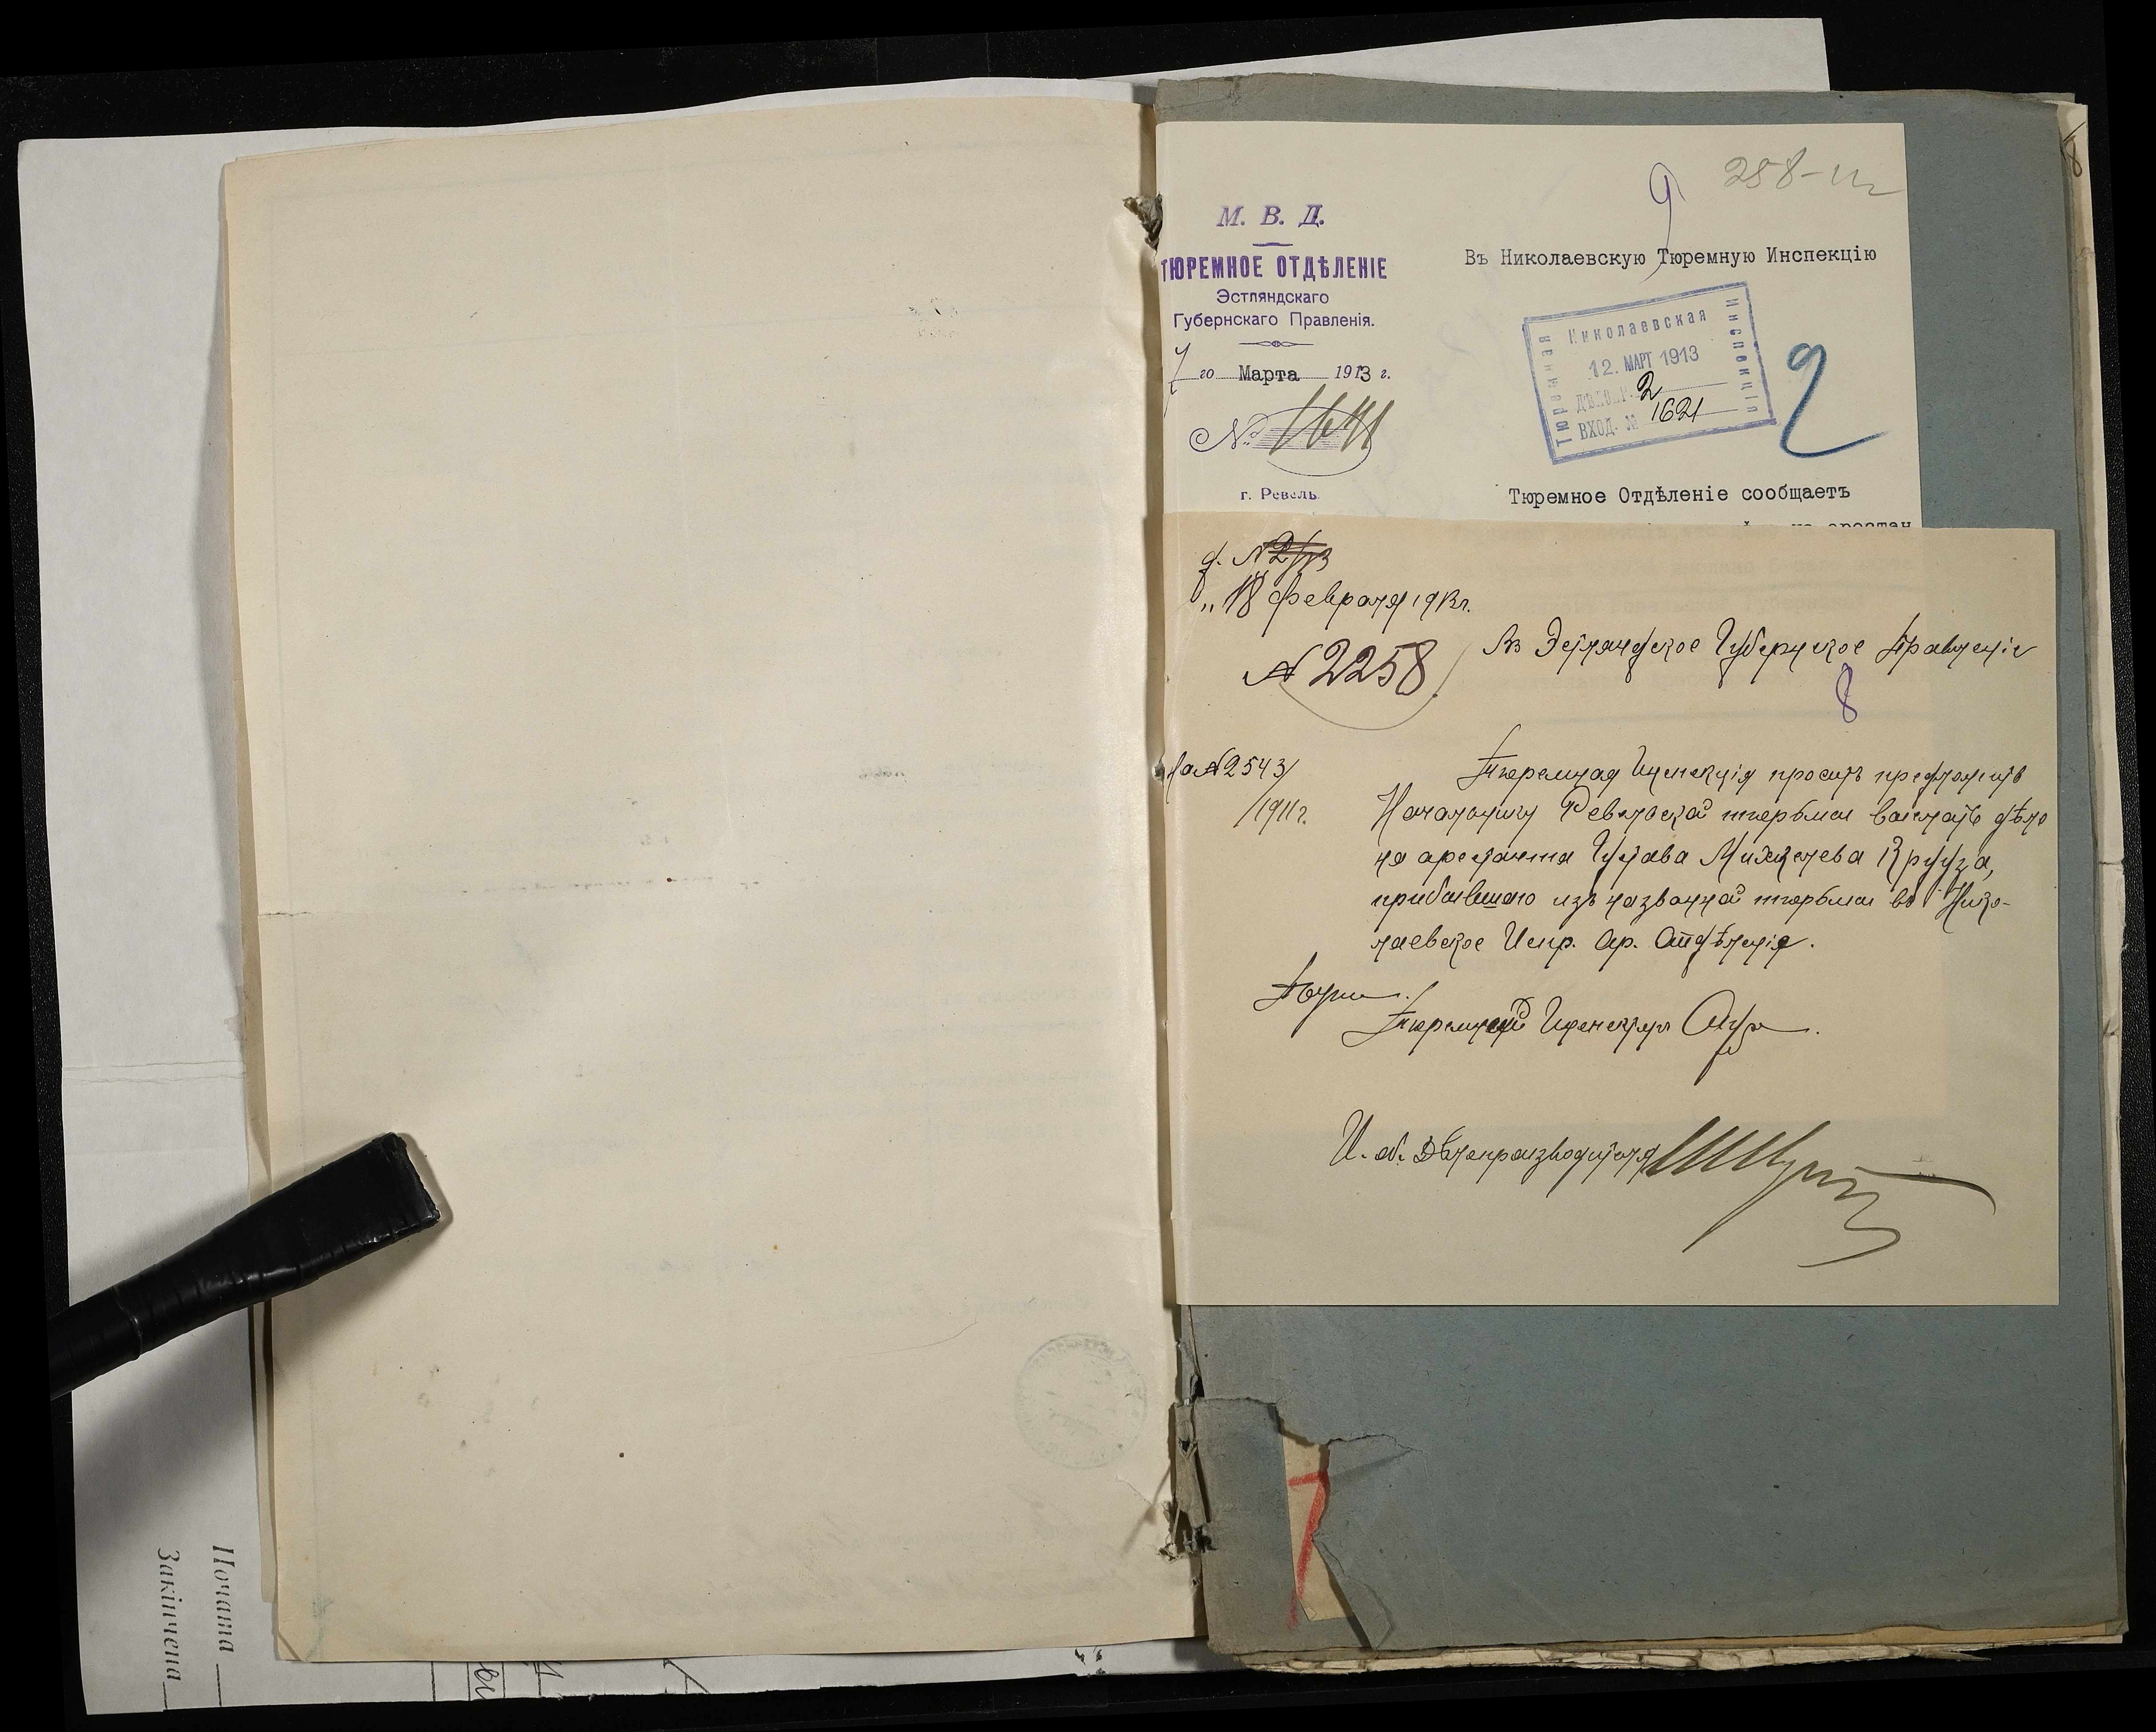 258-
9
М. В. Д.
ТЮРЕМНОЕ ОТДѢЛЕНІЕ
Эстляндскаго
Губернскаго Правленія.
7 го Марта 1913 г.
№ 1641
г. Ревель.
Въ Николаевскую Тюремную Инспекцію
Николаевская
Тюремная
Инспекція
12. МАРТ 1913
2
ВХОД. № 1621
2
Тюремное Отдѣленіе сообщаетъ
на арестан
д. № 2/13
"18 Февраля 1913 г.
№ 2258
Въ Эстляндское Губернское Правленіе
8
На № 2543/
/1911 г.
Тюремная Инспекція проситъ предложить
Начальнику Ревельской тюрьмы выслать дѣло
на арестанта Густава Михкелева Крууза,
прибывшаго изъ названной тюрьмы въ Нико-
лаевское Испр. Ар. Отдѣленіе.
Тюремный Инспекторъ
И. об. Дѣлопроизводителя
7
8
Почата
Закінчена